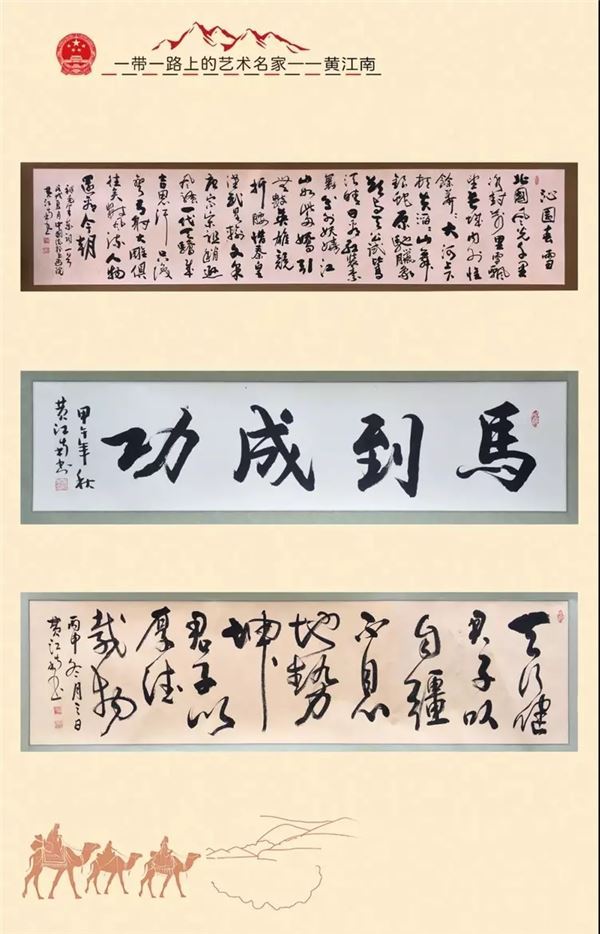 一带一路上的艺术名家——黄江南
沁园春雪
北國风光千里
冰封万里雪飘
望长城内外惟
餘莽莽大河上下
頓失滔滔山舞
銀蛇原馳臘象
欲与天公试比高
须晴日看红装素
裹分外妖娆江
山如此多嬌引
無數英雄競
折腰惜秦皇
漢武略輸文采
唐宗宋祖稍逊
风骚一代天驕成
吉思汗只识
彎弓射大雕俱
往矣數风流人物
還看今朝
黄江南书
馬到成功
甲午年秋
黄江南书
天行健
君子以
自疆
不息
地势
坤
君子以
厚德
載物
丙申冬月三日
黄江南书